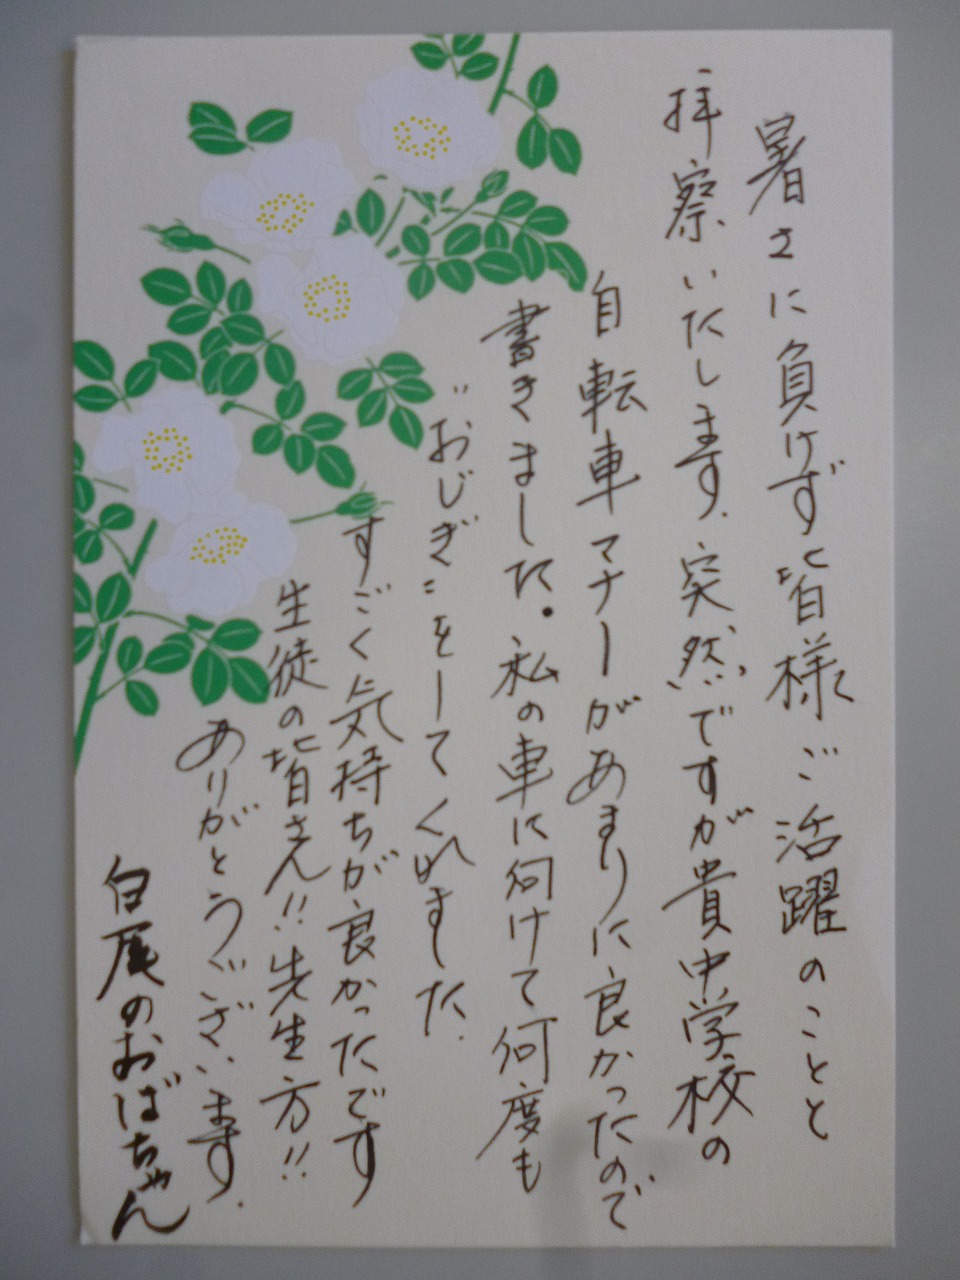 暑さに負けず皆様ご活躍のことと
拝察いたします。突然ですが貴中学校の
自転車マナーがあまりに良かったので
書きました。私の車に向けて何度も
"おじぎ"をしてくれました。
すごく気持ちが良かったです
生徒の皆さん!!先生方!!
ありがとうございます。
白尾のおばちゃん